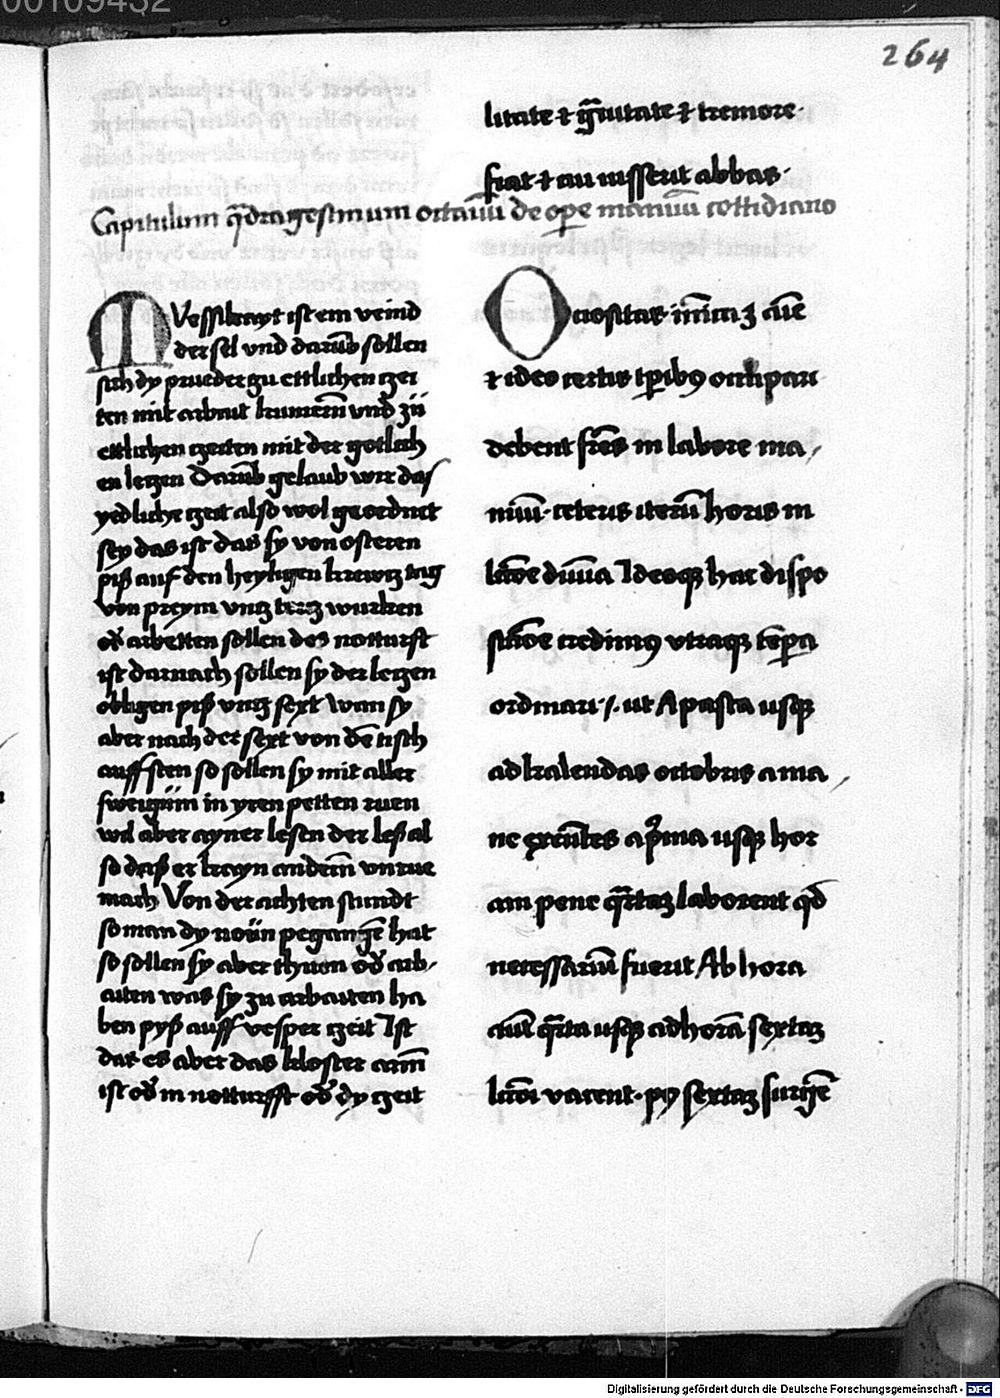 00109432
264
litate ⁊ g̃uitate ⁊ tremore·
fiat ⁊ cui iusserit abbas·
Capitulum q̃dragesimum octauũ de oꝑe manuũ cottidiano
Muessikayt ist ein veind
der sel vnd darũb sollen
sich dy prueder zu ettlichen czei
ten mit arbait kumerñ vnd zü
ettlichen czeiten mit der gotlich
en leczen Darũb gelaub wir das
yedliche czeit also wol geordnet
sey das ist das sy von osteren
piß auf den heyligen krewtz tag
von preym vntz tertz wurken
od̾ arbetten sollen des notturft
ist darnach sollen sy der leczen
obligen piß vntz sext Wan sy
aber nach der sext von dẽ tisch
auff sten so sollen sy mit aller
sweigüm in yren petten ruen
wil aber ayner lesen der leß al
so daß er kayn anderñ vnrue
mach Von der achten stundt
so man dy noün pegangẽ hat
so sollen sy aber thuen od̾ arb/
aiten was sy zu arbaiten ha
ben pyß auff vesper czeit Ist
dar es aber das kloster arm̃
ist od̾ in notturfft od̾ dy czeit
Ociositas inĩica ꝫ aĩe
⁊ ideo certis tꝑibꝰ occupari
debent fr̃es in labore ma/
nuũ· ceteris iterũ horis in
lc̃oe diuĩa Ideoqꝫ hac dispo
sic̃oe credimꝰ vtraqꝫ tẽꝑa
ordinari ·/· ut A pasca usqꝫ
ad kalendas octobris a ma/
ne exeũtes a p̾ma usqꝫ hor
am pene q̃rtaꝫ laborent qd̾
necessariũ fuerit Ab hora
aũt q̃rta usqꝫ ad horã sextaꝫ
lc̃oi vacent· pꝰ sextaꝫ surgẽ
Digitalisierung gefördert durch die Deutsche Forschungsgemeinschaft - DFG